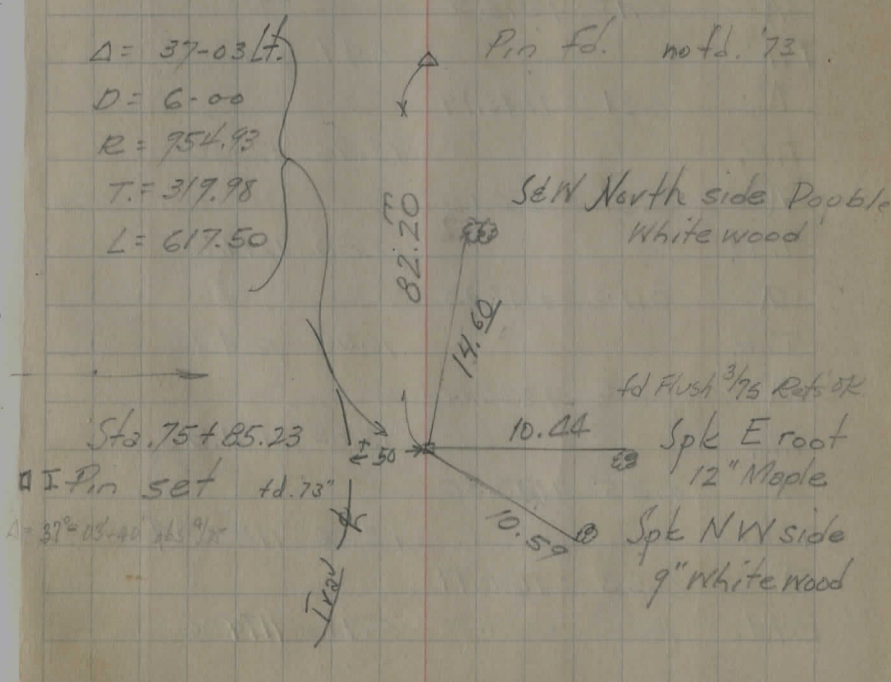 Δ = 37-03 Lt.
D = 6-00
R = 954.93
T. = 319.98
L = 617.50
Pin fd. no fd. '73
82.20
S&W North side Double
White wood
14.60
fd Flush 3/75 Refs OK
Sta. 75+85.23
± 50
10.44
Spk E root
12" Maple
I Pin set fd. 73"
Δ = 37°-03'-40" obs 9/75
10.59
Spk NW side
9" White wood
Trav